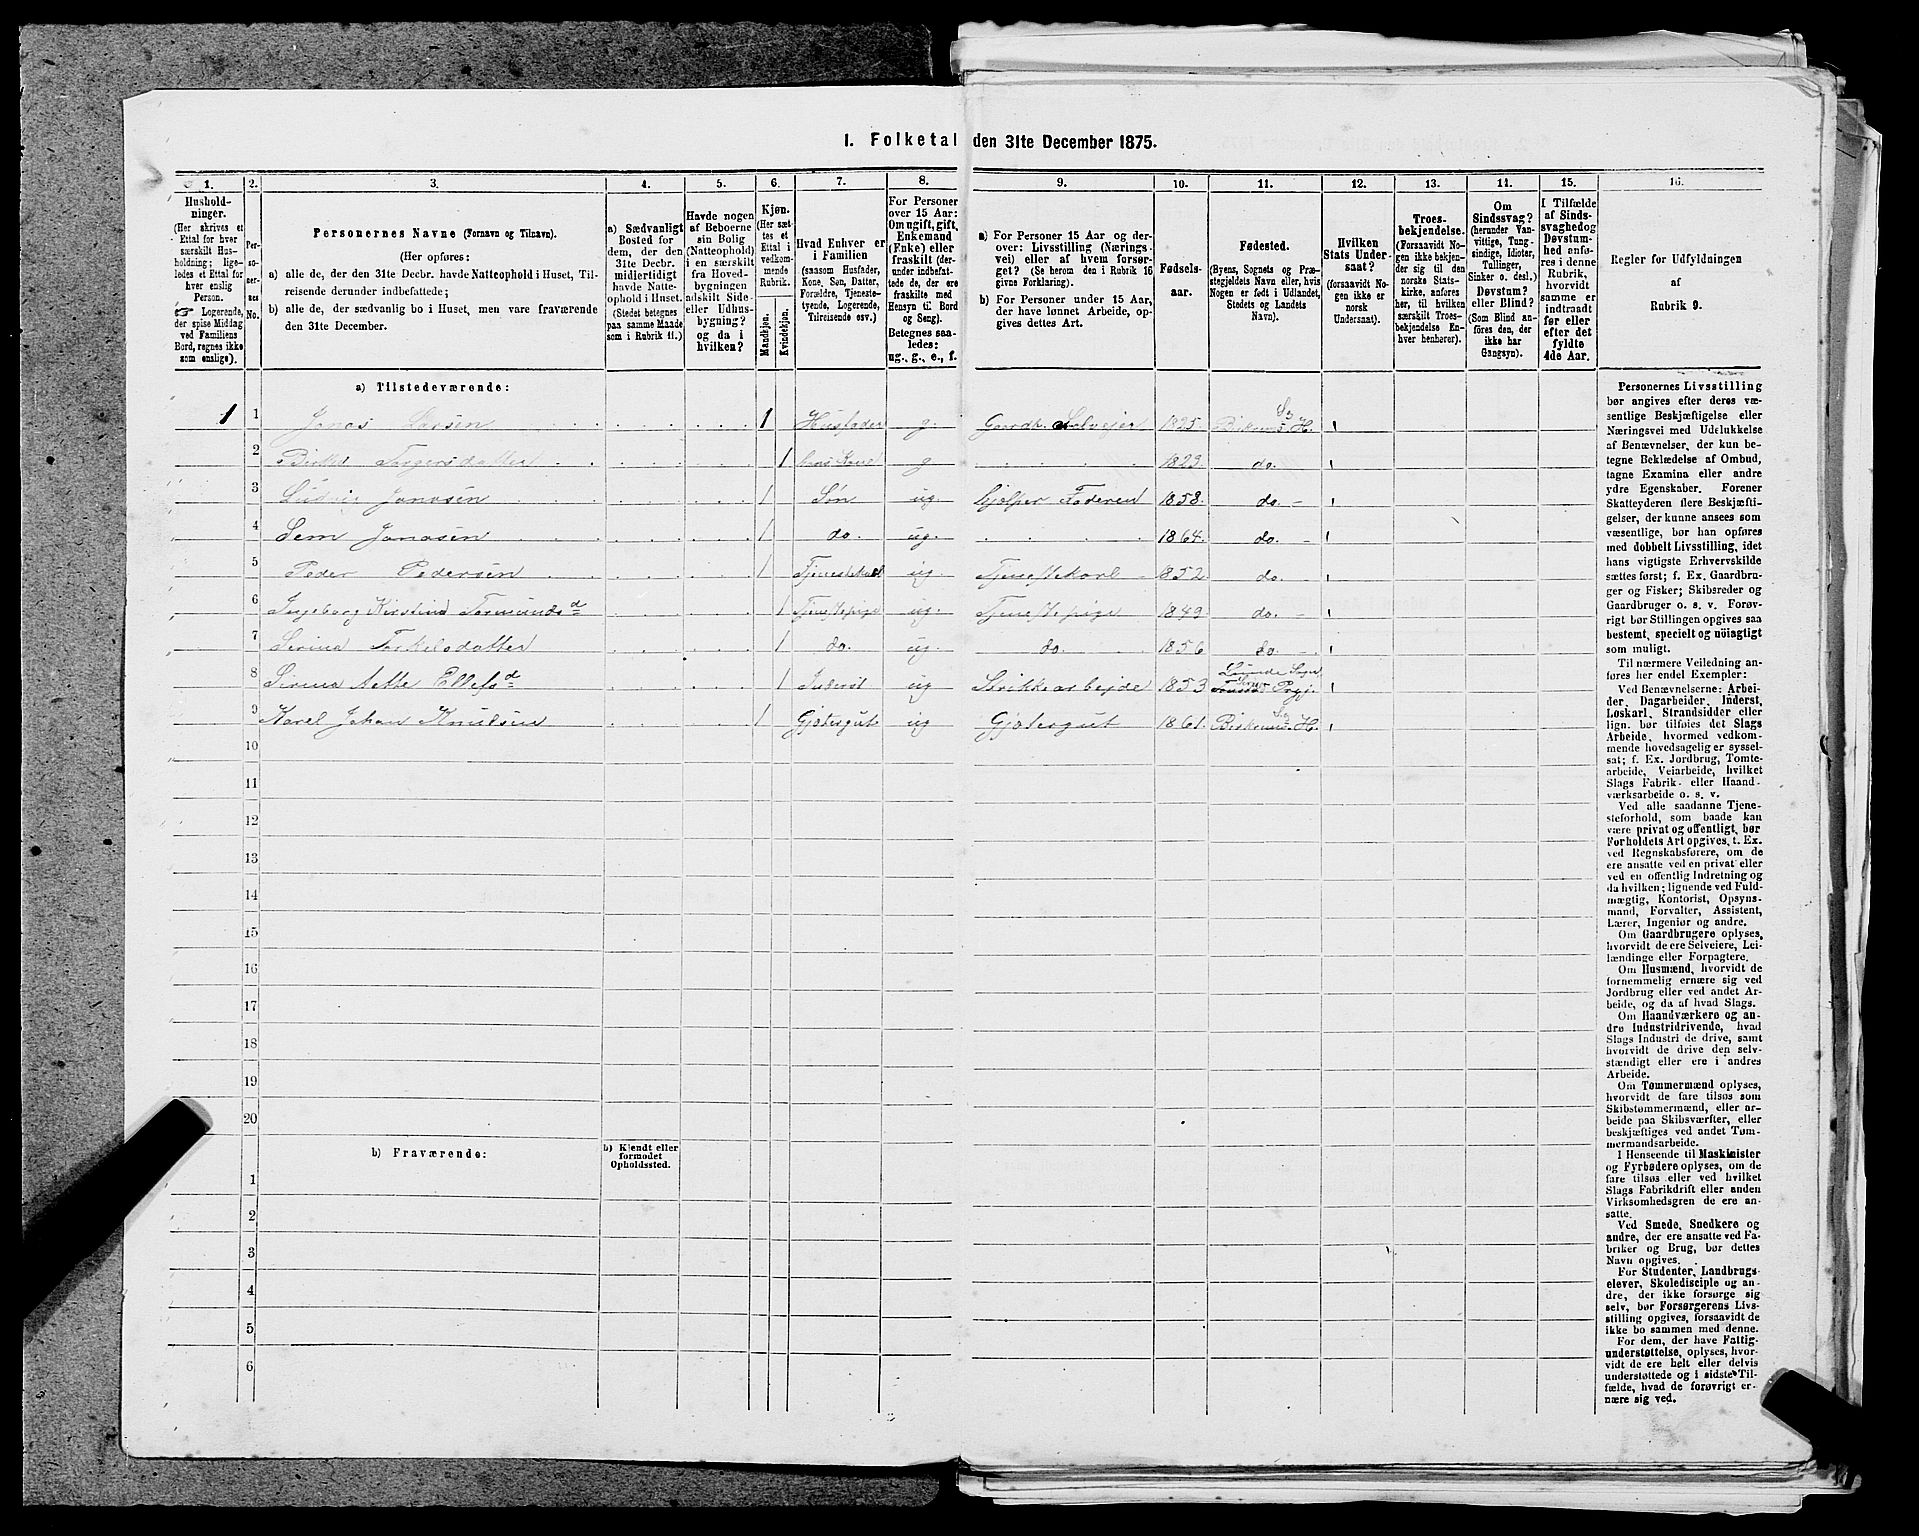 I. Folketal den 31te December 1875.
1. 2. 3. 4. 5. 6. 7. 8. 9. 10. 11. 12. 13. 14. 15. 16.
Hushold-
ninger.
(Her skrives et
Ettal for hver
særskilt Hus-
holdning; lige-
ledes et Ettal for
hver enslig
Person.
☞ Logerende,
der spise Middag
ved Familiens
Bord, regnes ikke
som enslige).
Per-
so-
ner-
nes
No.
Personernes Navne (Fornavn og Tilnavn).
(Her opføres:
a) alle de, der den 31te Decbr. havde Natteophold i Huset, Til-
reisende derunder indbefattede;
b) alle de, der sædvanlig bo i Huset, men vare fraværende
den 31te December.
a) Sædvanligt
Bosted for
dem, der den
31te Decbr.
midlertidigt
havde Natte-
ophold i Huset.
(Stedet betegnes
paa samme Maade
som i Rubrik 11.)
Havde nogen
af Beboerne
sin Bolig
(Natteophold)
i en særskilt
fra Hoved-
bygningen
adskilt Side-
eller Udhus-
bygning?
og da i
hvilken?
Kjøn.
(Her sæt-
tes et
Ettal i
vedkom-
mende
Rubrik.
Mandkjøn.
Kvindekjøn.
Hvad Enhver er
i Familien
(saasom Husfader,
Kone, Søn, Datter,
Forældre, Tjeneste-
tyende, Logerende,
Tilreisende osv.)
For Personer
over 15 Aar:
Om ugift, gift,
Enkemand
(Enke) eller
fraskilt (der-
under indbefat-
tede de, der ere
fraskilte med
Hensyn til Bord
og Seng).
Betegnes saa-
ledes:
ug., g., e., f.
a) For Personer 15 Aar og der-
over: Livsstilling (Nærings-
vei) eller af hvem forsør-
get? (Se herom den i Rubrik 16
givne Forklaring).
b) For Personer under 15 Aar,
der have lønnet Arbeide, op-
gives dettes Art.
Fødsels-
aar.
Fødested.
(Byens, Sognets og Præ-
stegjeldets Navn eller, hvis
Nogen er født i Udlandet,
Stedets og Landets
Navn).
Hvilken
Stats Under-
saat?
(forsaavidt No-
gen ikke er
norsk
Undersaat).
Troes-
bekjendelse.
(Forsaavidt No-
gen ikke bekjen-
der sig til den
norske Stats-
kirke, anføres
her, til hvilken
særskilt Troes-
bekjendelse En-
hver henhører).
Om
Sindssvag?
(herunder Van-
vittige, Tung-
sindige, Idioter,
Tullinger,
Sinker o. desl.)
Døvstum?
eller Blind?
(Som Blind an-
føres den, der
ikke har
Gangsyn).
I Tilfælde
af Sinds-
svaghed og
Døvstum-
hed anfø-
res i denne
Rubrik,
hvorvidt
samme er
indtraadt
før eller
efter det
fyldte
4de Aar.
Regler for Udfyldningen
af
Rubrik 9.
a) Tilstedeværende:
1 1 Jonas Larsen 1 Husfader g. Gaardb. Selveier 1825 So
H.
2 Torgersdatter 1 hans Kone g 1823. do.
3 Ludvig Jonasen 1 Søn ug. hjelper Faderen 1858. do.
4 Sem Jonasen 1 do. ug. 1864. do.
5 Peder Pedersen 1 Tjenestekarl ug. Tjenestekarl 1852. do.
6 Ingeborg Kirstine Tormundsd 1 Tjenestepige ug. Tjenestepige 1849. do.
7 Serine Torkelsdatter 1 do. ug. do. 1856 do.
8 Sirena Aette Ellefsd 1 Inderst ug Strikkearbejde 1853 Lunde Sogn
Prgj.
9 Karel Johan Knutsen 1 Gjætergut ug Gjætergut 1861. H.
10
11
12
13
14
15
16
17
18
19
20
b) Fraværende:
b) Kjendt eller
formodet
Opholdssted.
1
2
3
4
5
6
Personernes Livsstilling
bør angives efter deres væ-
sentlige Beskjæftigelse eller
Næringsvei med Udelukkelse
af Benævnelser, der kun be-
tegne Beklædelse af Ombud,
tagne Examina eller andre
ydre Egenskaber. Forener
Skatteyderen flere Beskjæfti-
gelser, der kunne ansees som
væsentlige, bør han opføres
med dobbelt Livsstilling, idet
hans vigtigste Erhvervskilde
sættes først; f. Ex. Gaardbru-
ger og Fisker; Skibsreder og
Gaardbruger o. s. v. Forøv-
rigt bør Stillingen opgives saa
bestemt, specielt og nöiagtigt
som muligt.
Til nærmere Veiledning an-
føres her endel Exempler:
Ved Benævnelserne: Arbei-
der, Dagarbeider, Inderst,
Løskarl, Strandsidder eller
lign. bør tilføies det Slags
Arbeide, hvormed vedkom-
mende hovedsagelig er syssel-
sat; f. Ex. Jordbrug, Tomte-
arbeide, Veiarbeide, hvilket
Slags Fabrik- eller Haand-
værksarbeide o. s. v.
Ved alle saadanne Tjene-
steforhold, som baade kan
være privat og offentligt, bør
Forholdets Art opgives, t. Ex.
ved Regnskabsførere, om de
ere ansatte ved en privat eller
ved en offentlig Indretning og
da hvilken; lignende ved Fuld-
mægtig, Kontorist, Opsyns-
mand, Forvalter, Assistent,
Lærer, Ingeniør og andre.
Om Gaardbrugere oplyses,
hvorvidt de ere Selveiere, Lei-
lændinge eller Forpagtere.
Om Husmænd, hvorvidt de
fornemmelig ernære sig ved
Jordbrug eller ved andet Ar-
beide, og da af hvad Slags.
Om Haandværkere og an-
dre Industridrivende, hvad
Slags Industri de drive, samt
hvorvidt de drive den selv-
stændigt eller ere i andres
Arbeide.
Om Tømmermænd oplyses,
hvorvidt de fare tilsøs som
Skibstømmermænd, eller ar-
beide paa Skibsværfter, eller
beskjæftiges ved andet Tøm-
mermandsarbeide.
I Henseende til Maskinister
og Fyrbødere oplyses, om de
fare tilsøs eller ved hvilket
Slags Fabrikdrift eller anden
Virksomhedsgren de ere an-
satte.
Ved Smede, Snedkere og
andre, der ere ansatte ved Fa-
briker og Brug, bør dettes
Navn opgives.
For Studenter, Landbrugs-
elever, Skoledisciple og an-
dre, der ikke forsørge sig
selv, bør Forsørgerens Livs-
stilling opgives, forsaavidt de
ikke bo sammen med denne.
For dem, der have Fattig-
understøttelse, oplyses, hvor-
vidt de ere helt eller delvis
understøttede og i sidste Til-
fælde, hvad de forøvrigt er-
nære sig ved.